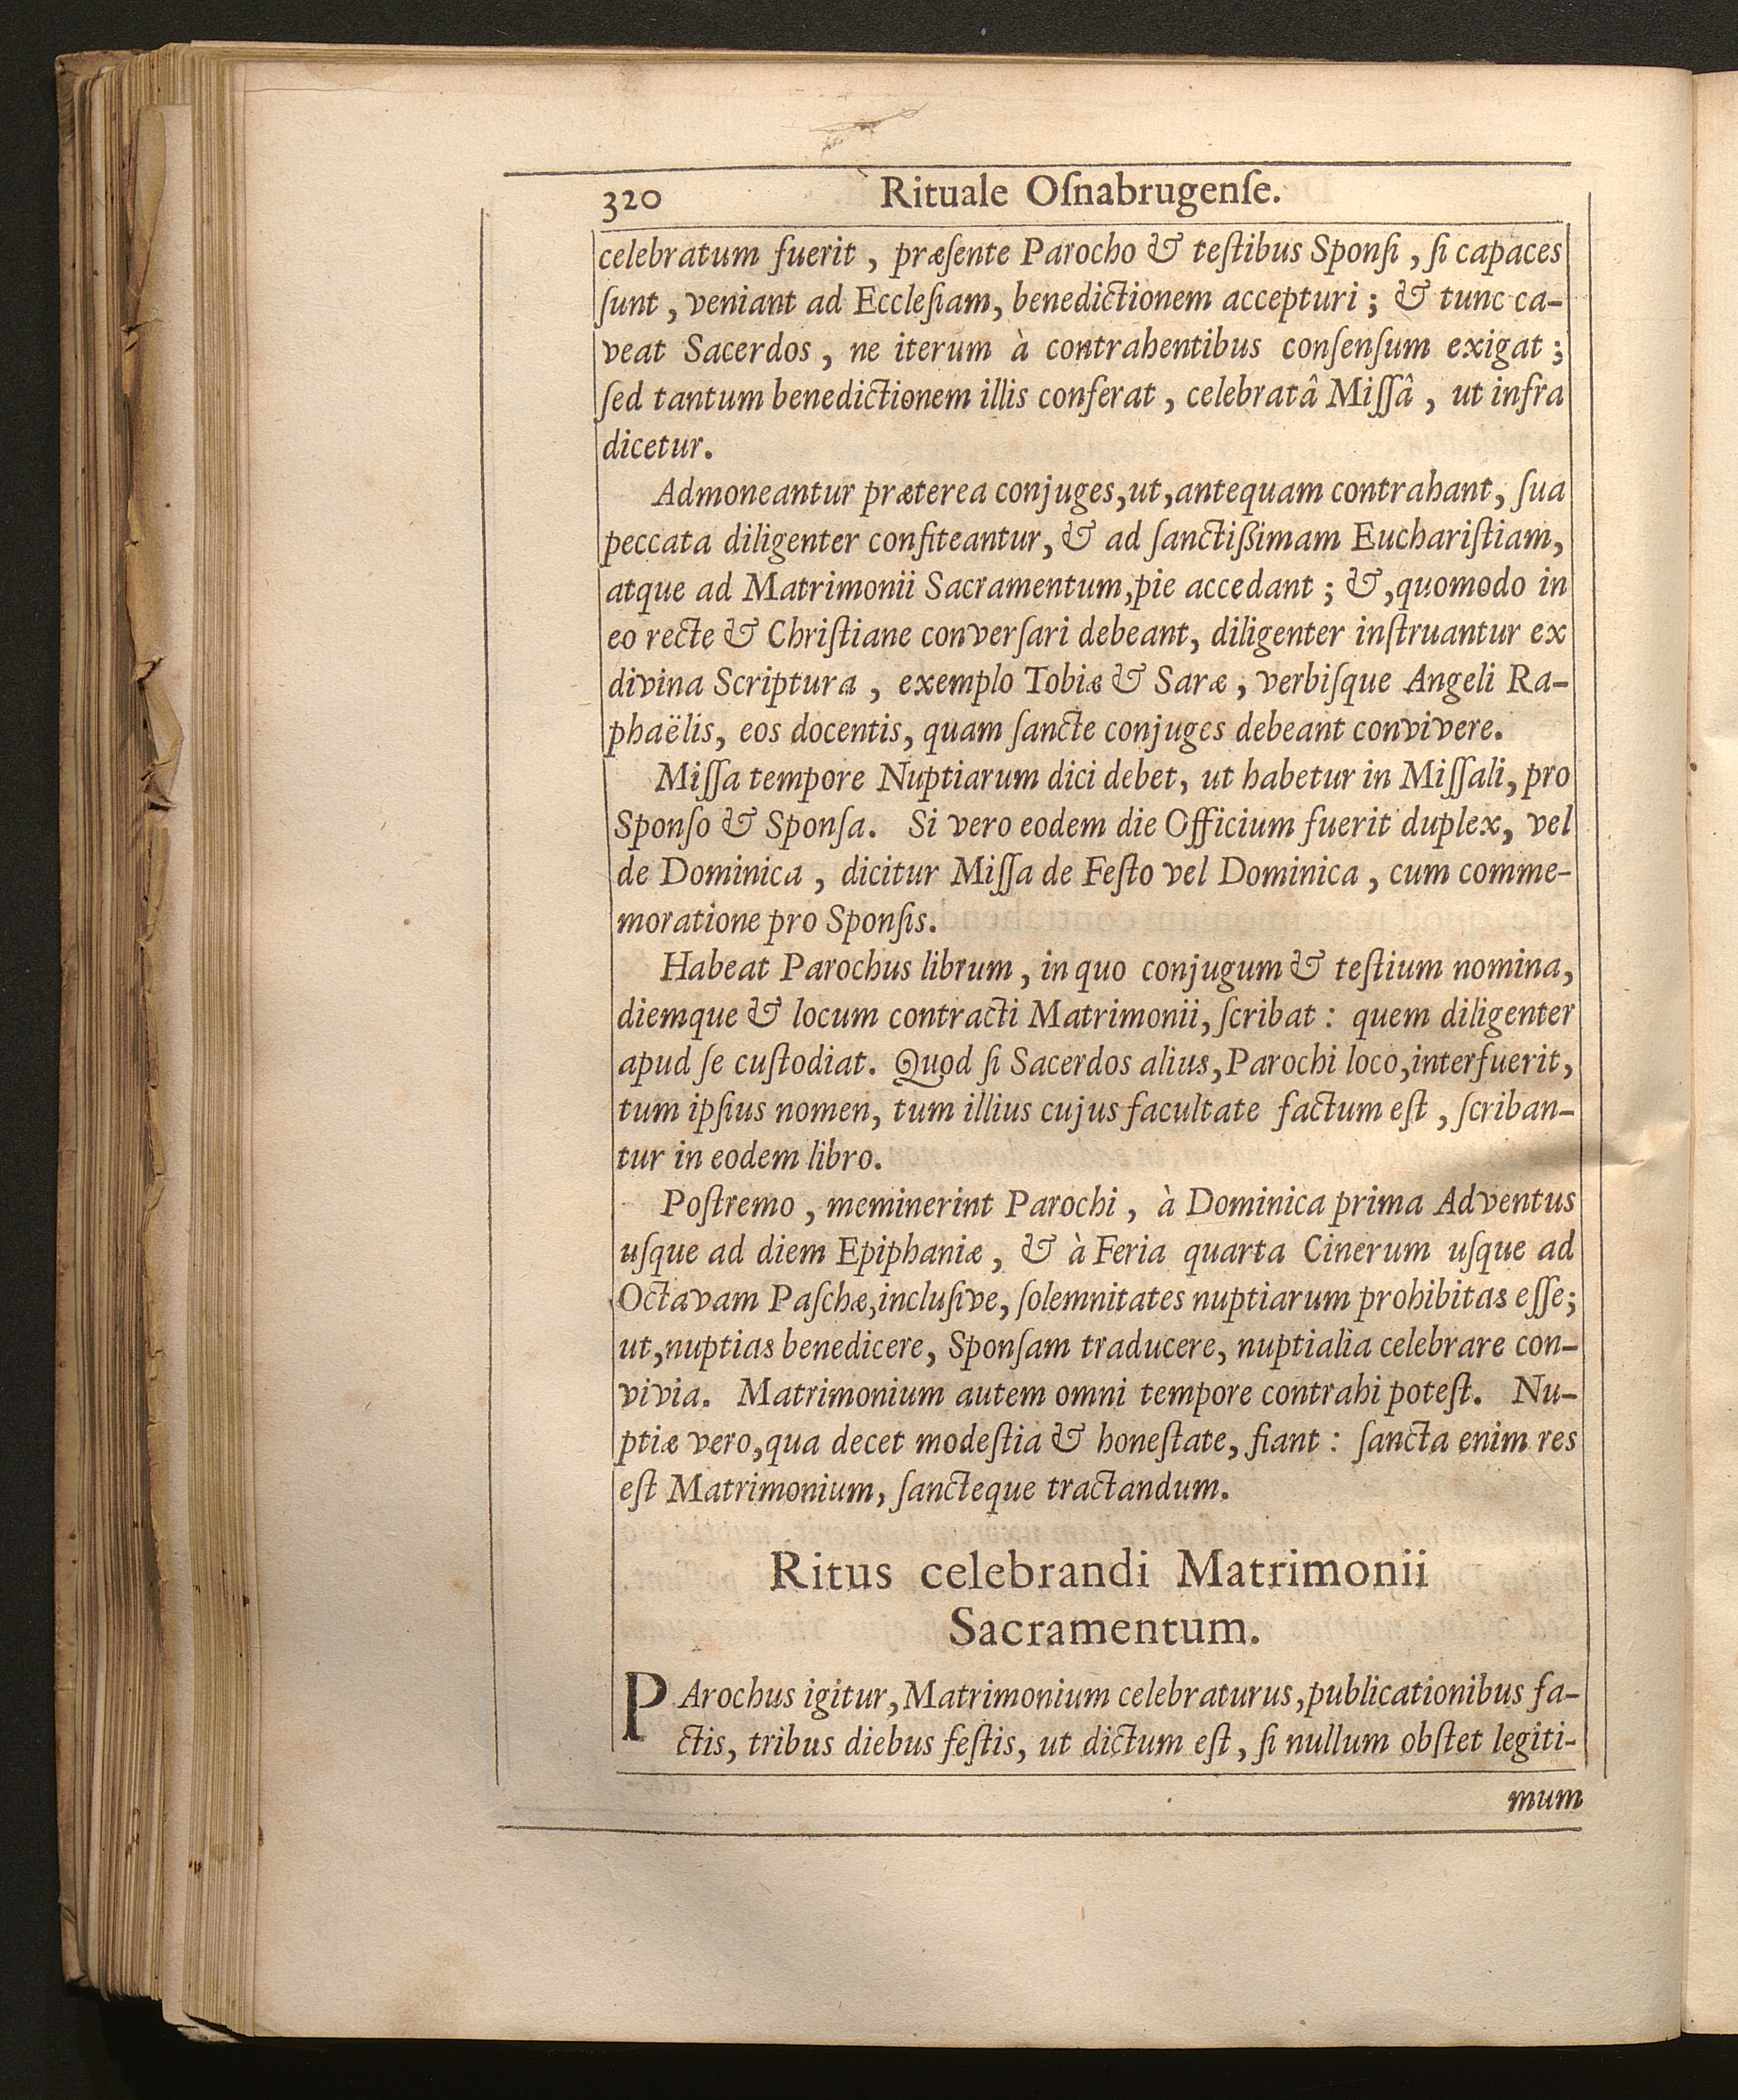 320 Rituale Oſnabrugenſe.
celebratum fuerit, præſente Parocho & teſtibus Sponſi, ſi capaces
ſunt, veniant ad Eccleſiam, benedictionem accepturi; & tunc ca-
veat Sacerdos, ne iterum à contrahentibus conſenſum exigat;
ſed tantum benedictionem illis conferat, celebratâ Miſſâ, ut infra
dicetur.
Admoneantur præterea conjuges, ut, antequam contrahant, ſua
peccata diligenter confiteantur, & ad ſanctißimam Euchariſtiam,
atque ad Matrimonii Sacramentum, pie accedant; &, quomodo in
eo recte & Chriſtiane converſari debeant, diligenter inſtruantur ex
divina Scriptura, exemplo Tobiæ & Saræ, verbiſque Angeli Ra-
phaëlis, eos docentis, quam ſancte conjuges debeant convivere.
Miſſa tempore Nuptiarum dici debet, ut habetur in Miſſali, pro
Sponſo & Sponſa. Si vero eodem die Officium fuerit duplex, vel
de Dominica, dicitur Miſſa de Feſto vel Dominica, cum comme-
moratione pro Sponſis.
Habeat Parochus librum, in quo conjugum & teſtium nomina,
diemque & locum contracti Matrimonii, ſcribat: quem diligenter
apud ſe cuſtodiat. Quod ſi Sacerdos alius, Parochi loco, interfuerit,
tum ipſius nomen, tum illius cujus facultate factum eſt, ſcriban-
tur in eodem libro.
Poſtremo, meminerint Parochi, à Dominica prima Adventus
uſque ad diem Epiphaniæ, & à Feria quarta Cinerum uſque ad
Octavam Paſchæ, incluſive, ſolemnitates nuptiarum prohibitas eſſe;
ut, nuptias benedicere, Sponſam traducere, nuptialia celebrare con-
vivia. Matrimonium autem omni tempore contrahi poteſt. Nu-
ptiæ vero, qua decet modeſtia & honeſtate, fiant: ſancta enim res
eſt Matrimonium, ſancteque tractandum.
Ritus celebrandi Matrimonii
Sacramentum.
PArochus igitur, Matrimonium celebraturus, publicationibus fa-
ctis, tribus diebus feſtis, ut dictum eſt, ſi nullum obſtet legiti-
mum